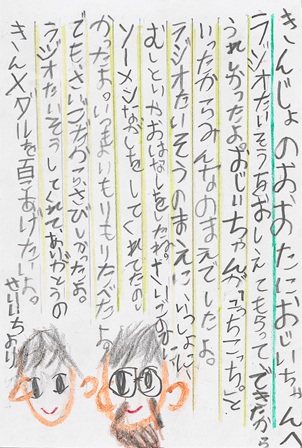 きんじょのおおたにおじいちゃんへ
ラジオたいそうをおしえてもらってできたから
うれしかったよ。おじいちゃんが「こっちこっち。」と
いったからみんなのまえでしたよ。
ラジオたいそうのまえに、いっしょに、
むしとりやおはなしをしたね。さいごのかいに
ソーメンながしをしてくれてたのし
かったよ。いつもよりもりもりたべたよ。
でも、さいごだからさびしかったよ。
ラジオたいそうしてくれて、ありがとうの
きんメダルを百こあげたいよ。
せいいちより